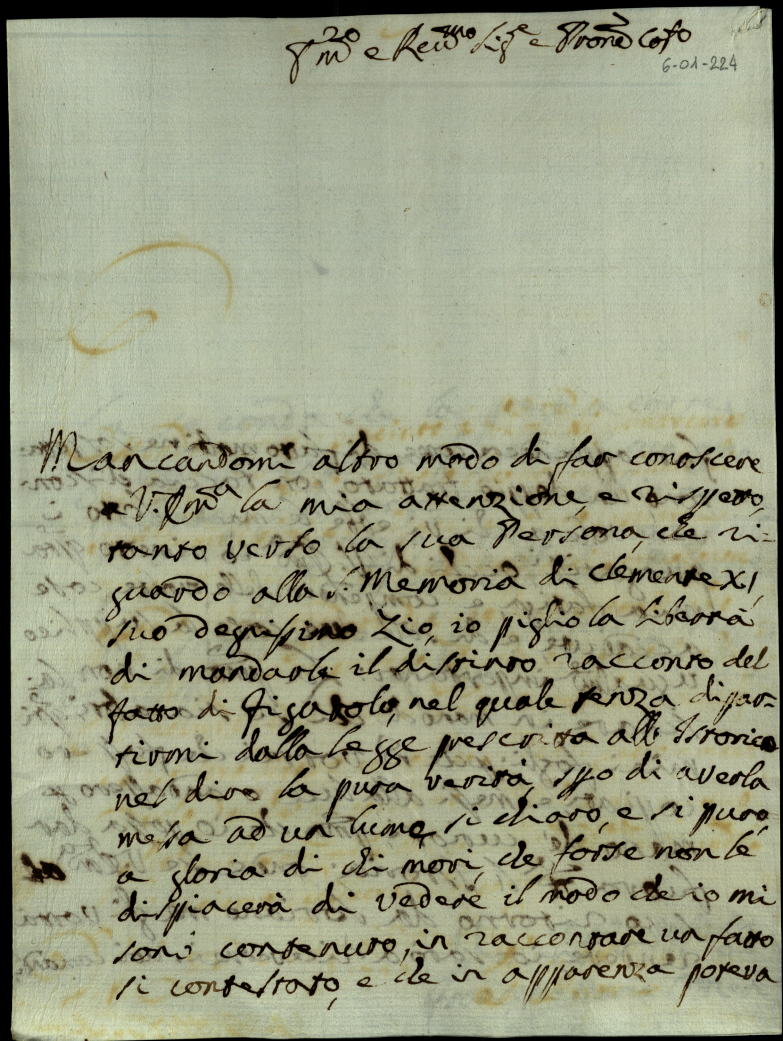 Emo e Revmo Sige e Prone Colo
6-01-224
Mancandomi altro modo di far conoscere
a V. Ema la mia attenzione, e rispetto,
tanto verso la sua Persona, che ri=
guardo alla S. Memoria di Clemente XI,
suo degnissimo Zio, io piglio la libertà
di mandarle il distinto racconto del
fatto di Figarolo, nel quale senza dipar=
tirmi dalla legge prescritta all' Istorico
nel dire la pura verità, spo di averla
messa ad un lume si chiaro, e si puro,
a gloria di chi morì, che forse non le
dispiacerà di vedere il modo che io mi
sono contenuto, in raccontare un fatto
si contestato, e che in apparenza poteva